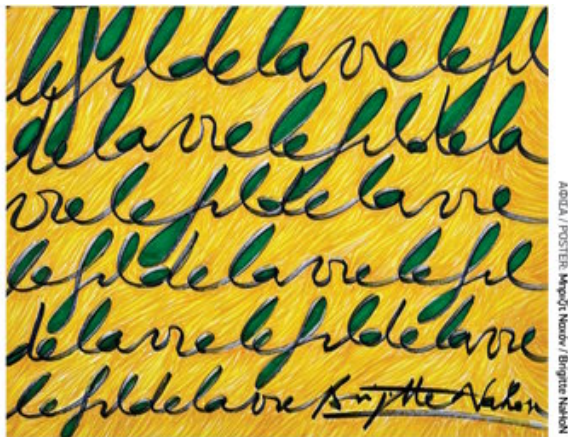 lefildelavielefil
delavielefildela
vielefildelavie
lefildelavielefil
delavielefildelavie
lefildelavie Brigitte NaHon
ΑΦΙΣΑ / POSTER: Μπριζίτ Ναχόν / Brigitte NaHoN